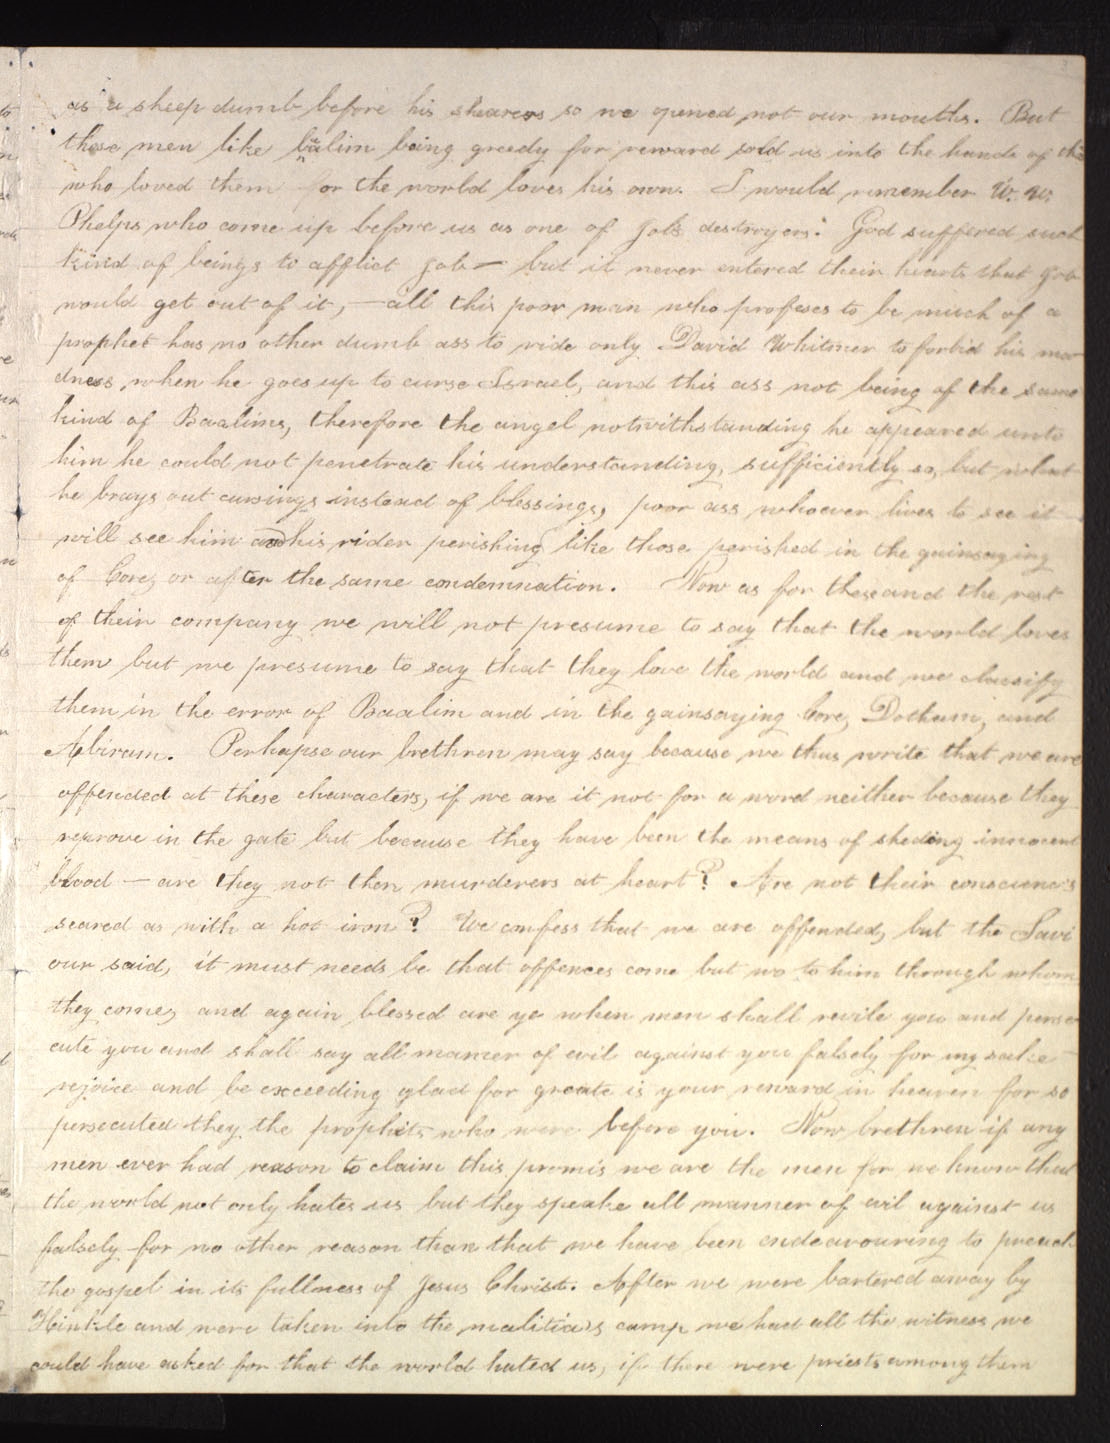 as a sheep dumb before his shearers so we opened not our mouths. But
these men like balim being greedy for reward sold us into the hands of
who loved them for the world loves his own. I would remember W. W.
Phelps who come up before us as one of Job's destroyers. God suffered such
kind of beings to afflict Job— but it never entered their hearts that Job
would get out of it,— all this poor man who professes to be much of a
prophet has no other dumb ass to ride only David Whitmer to forbid his ma
dness when he goes up to curse Israel, and this ass not being of the same
kind of Baalims, therefore the angel notwithstanding he appeared unto
him he could not penetrate his understanding, sufficiently so, but what
he brays out cursings instead of blessings, poor ass whoever lives to see it
will see him and his rider perishing like those perished in the gainsaying
of Core, or after the same condemnation. Now as for these and the rest
of their company we will not presume to say that the world loves
them but we presume to say that they love the world and we classify
them in the error of Baalim and in the gainsaying Core, Dotham, and
Abiram. Perhapse our brethren may say because we thus write that we are
offended at these characters, if we are it not for a word neither because they
reprove in the gate but because they have been the means of sheding innocent
blood — are they not then murderers at heart? Are not their
seared as with a hot iron? We confess that we are offended, but the Savi
our said, it must needs be that offences come but wo to him through whom
they come, and again blessed are ye when men shall revile you and perse
cute you and shall say all manner of evil against you falsely for my sake
rejoice and be exceeding glad for greate is your reward in heaven for so
persecuted they the prophets who were before you. Now brethren if any
men ever had reason to claim this promis we are the men for we know that
the world not only hates us but they speake all manner of evil against us
falsely for no other reason than that we have been endeavouring to preach
the gospel in its fullness of Jesus Christ. After we were bartered away by
Hinkle and were taken into the malitia's camp we had all the witness we
could have asked for that the world hated us, if there were priests among them